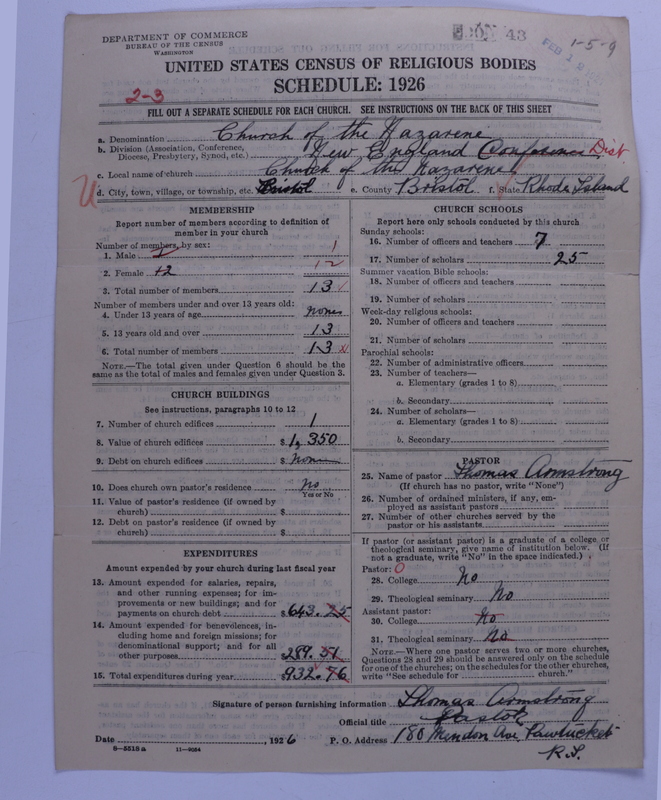 DEPARTMENT OF COMMERCE
BUREAU OF THE CENSUS
WASHINGTON
43
FEB 1
1-5-9
UNITED STATES CENSUS OF RELIGIOUS BODIES
SCHEDULE: 1926
2-3
FILL OUT A SEPARATE SCHEDULE FOR EACH CHURCH. SEE INSTRUCTIONS ON THE BACK OF THIS SHEET
a. Denomination Church of the Nazarene
b. Division (Association, Conference, Diocese, Presbytery, Synod, etc.) New England Conference Dist
c. Local name of church Church of the Nazarene
U d. City, town, village, or township, etc. Bristol e. County Bristol f. State Rhode Island
MEMBERSHIP
Report number of members according to definition of
member in your church
Number of members, by sex:
1. Male 1 1
2. Female 12 12
3. Total number of members 13
Number of members under and over 13 years old:
4. Under 13 years of age none
5. 13 years old and over 13
6. Total number of members 13
NOTE.—The total given under Question 6 should be the
same as the total of males and females given under Question 3.
CHURCH BUILDINGS
See instructions, paragraphs 10 to 12
7. Number of church edifices 1
8. Value of church edifices $1,350
9. Debt on church edifices $ None
10. Does church own pastor's residence No
Yes or No
11. Value of pastor's residence (if owned by
church) $
12. Debt on pastor's residence (if owned by
church) $
EXPENDITURES
Amount expended by your church during last fiscal year
13. Amount expended for salaries, repairs,
and other running expenses; for im-
provements or new buildings; and for
payments on church debt $643.25
14. Amount expended for benevolences, in-
cluding home and foreign missions; for
denominational support; and for all
other purposes $289.51
15. Total expenditures during year $932.76
CHURCH SCHOOLS
Report here only schools conducted by this church
Sunday schools:
16. Number of officers and teachers 7
17. Number of scholars 25
Summer vacation Bible schools:
18. Number of officers and teachers
19. Number of scholars
Week-day religious schools:
20. Number of officers and teachers
21. Number of scholars
Parochial schools:
22. Number of administrative officers
23. Number of teachers—
a. Elementary (grades 1 to 8)
b. Secondary
24. Number of scholars—
a. Elementary (grades 1 to 8)
b. Secondary
PASTOR
25. Name of pastor Thomas Armstrong
(If church has no pastor, write "None")
26. Number of ordained ministers, if any, em-
ployed as assistant pastors
27. Number of other churches served by the
pastor or his assistants
If pastor (or assistant pastor) is a graduate of a college or
theological seminary, give name of institution below. (If
not a graduate, write "No" in the space indicated.)
Pastor: 0
28. College No
29. Theological seminary No
Assistant pastor:
30. College No
31. Theological seminary No
NOTE.—Where one pastor serves two or more churches,
Questions 28 and 29 should be answered only on the schedule
for one of the churches; on the schedules for the other churches,
write "See schedule for church."
Signature of person furnishing information Thomas Armstrong
Official title Pastor
Date , 1926 P. O. Address 180 Mendon Ave Pawtucket
R.I.
9-5518 a 11-9084